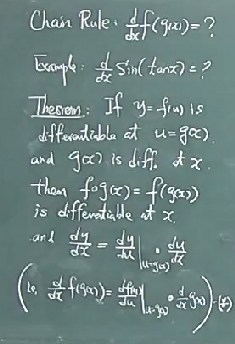 Chain Rule: d/dx f(g(x)) = ?
Example: d/dx Sin(tanx) = ?
Theorem: If y = f(u) is
differentiable at u = g(x)
and g(x) is diff. at x
then f∘g(x) = f(g(x))
is differentiable at x
and dy/dx = dy/du |u=g(x) · du/dx
(i.e. d/dx f(g(x)) = df(u)/du |u=g(x) · d/dx g(x))